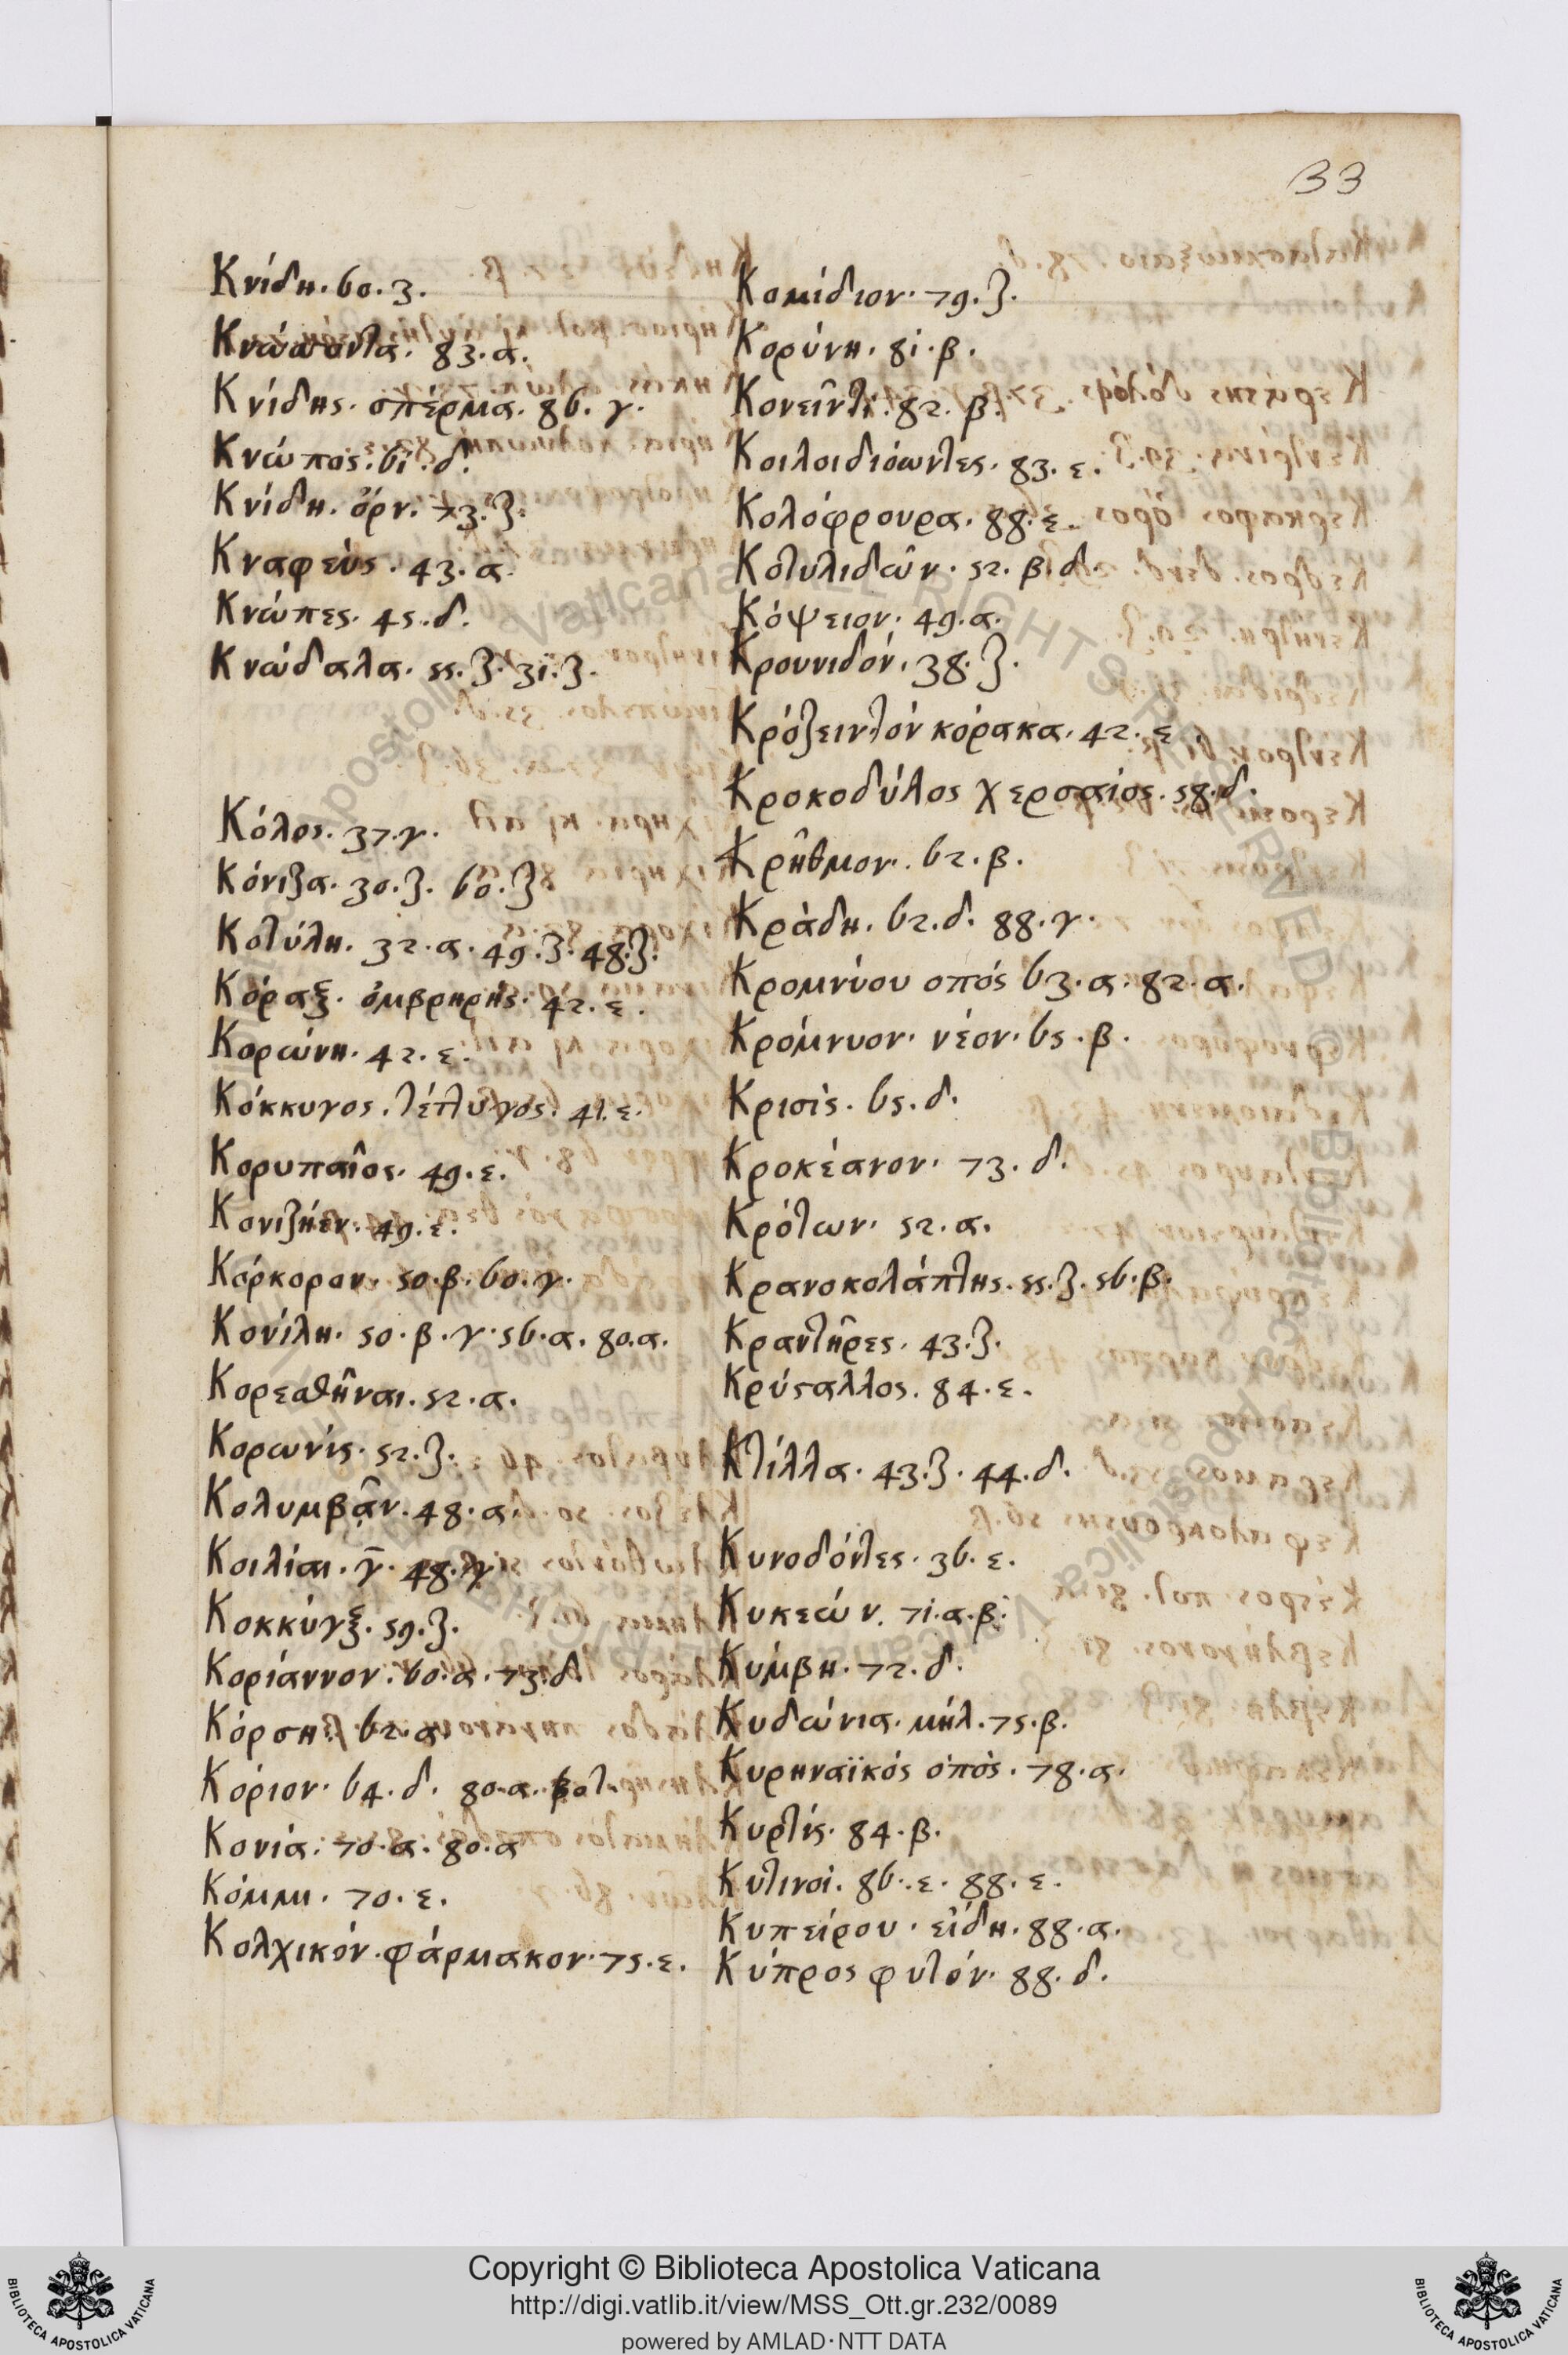 33
Κνίδη. 60. ζ.
Κνώπωντα. 83. α.
Κνίδης. σπέρμα. 86. γ.
Κνώπος. 61. δ.
Κνίδη. ὄρν. 73. ζ.
Κναφεύς. 43. α.
Κνώπες. 45. δ.
Κνώδαλα. 55. ζ. 31. ζ.
Κόλος. 37. γ.
Κόνιζα. 30. ζ. 60. ζ
Κοτύλη. 32. α. 49. ζ. 48. ζ.
Κόραξ. ὀμβρηρής. 42. ε.
Κορώνη. 42. ε.
Κόκκυγος. τέττυγος. 41. ε.
Κορυπαῖος. 49. ε.
Κονιζήεν. 49. ε.
Κόρκορον. 50. β. 60. γ.
Κονίλη. 50. β. γ. 56. α. 80. α.
Κορεσθῆναι. 52. α.
Κορωνίς. 52. ζ.
Κολυμβᾶν. 48. α.
Κοιλίαι. γ. 48. γ
Κοκκύγξ. 59. ζ.
Κορίαννον. 60. α. 73. δ
Κόρση. 62. α
Κόριον. 64. δ. 80. α. βοτ.
Κονία. 70. α. 80. α
Κόμμι. 70. ε.
Κολχικόν. φάρμακον. 75. ε.
Κομίδιον. 79. ζ.
Κορύνη. 81. β.
Κονεῖντι. 82. β.
Κοιλοιδιόωντες. 83. ε.
Κολόφρουρα. 88. ε.
Κοτυλιδῶν. 52. β. δ.
Κόψειον. 49. α.
Κρουνιδόν. 38. ζ.
Κρόζειν τὸν κόρακα. 42. ε
Κροκοδύλος χερσαίος. 58. δ.
Κρῆθμον. 62. β.
Κράδη. 62. δ. 88. γ.
Κρομνύου οπός 63. α. 82. α.
Κρόμνυον. νέον. 65. β.
Κρισίς. 65. δ.
Κροκέανον. 73. δ.
Κρότων. 52. α.
Κρανοκολάπτης. 55. ζ. 56. β.
Κραντῆρες. 43. ζ.
Κρύςαλλος. 84. ε.
Κτίλλα. 43. ζ. 44. δ.
Κυνοδόντες. 36. ε.
Κυκεών. 71. α. β.
Κύμβη. 72. δ.
Κυδώνια. μήλ. 75. β.
Κυρηναϊκός ὀπός. 78. α.
Κυρτίς. 84. β.
Κυτινοί. 86. ε. 88. ε.
Κυπείρου. εἴδη. 88. α.
Κύπρος φυτόν. 88. δ.
Copyright © Biblioteca Apostolica Vaticana
http://digi.vatlib.it/view/MSS_Ott.gr.232/0089
powered by AMLAD·NTT DATA
BIBLIOTECA APOSTOLICA VATICANA
BIBLIOTECA APOSTOLICA VATICANA